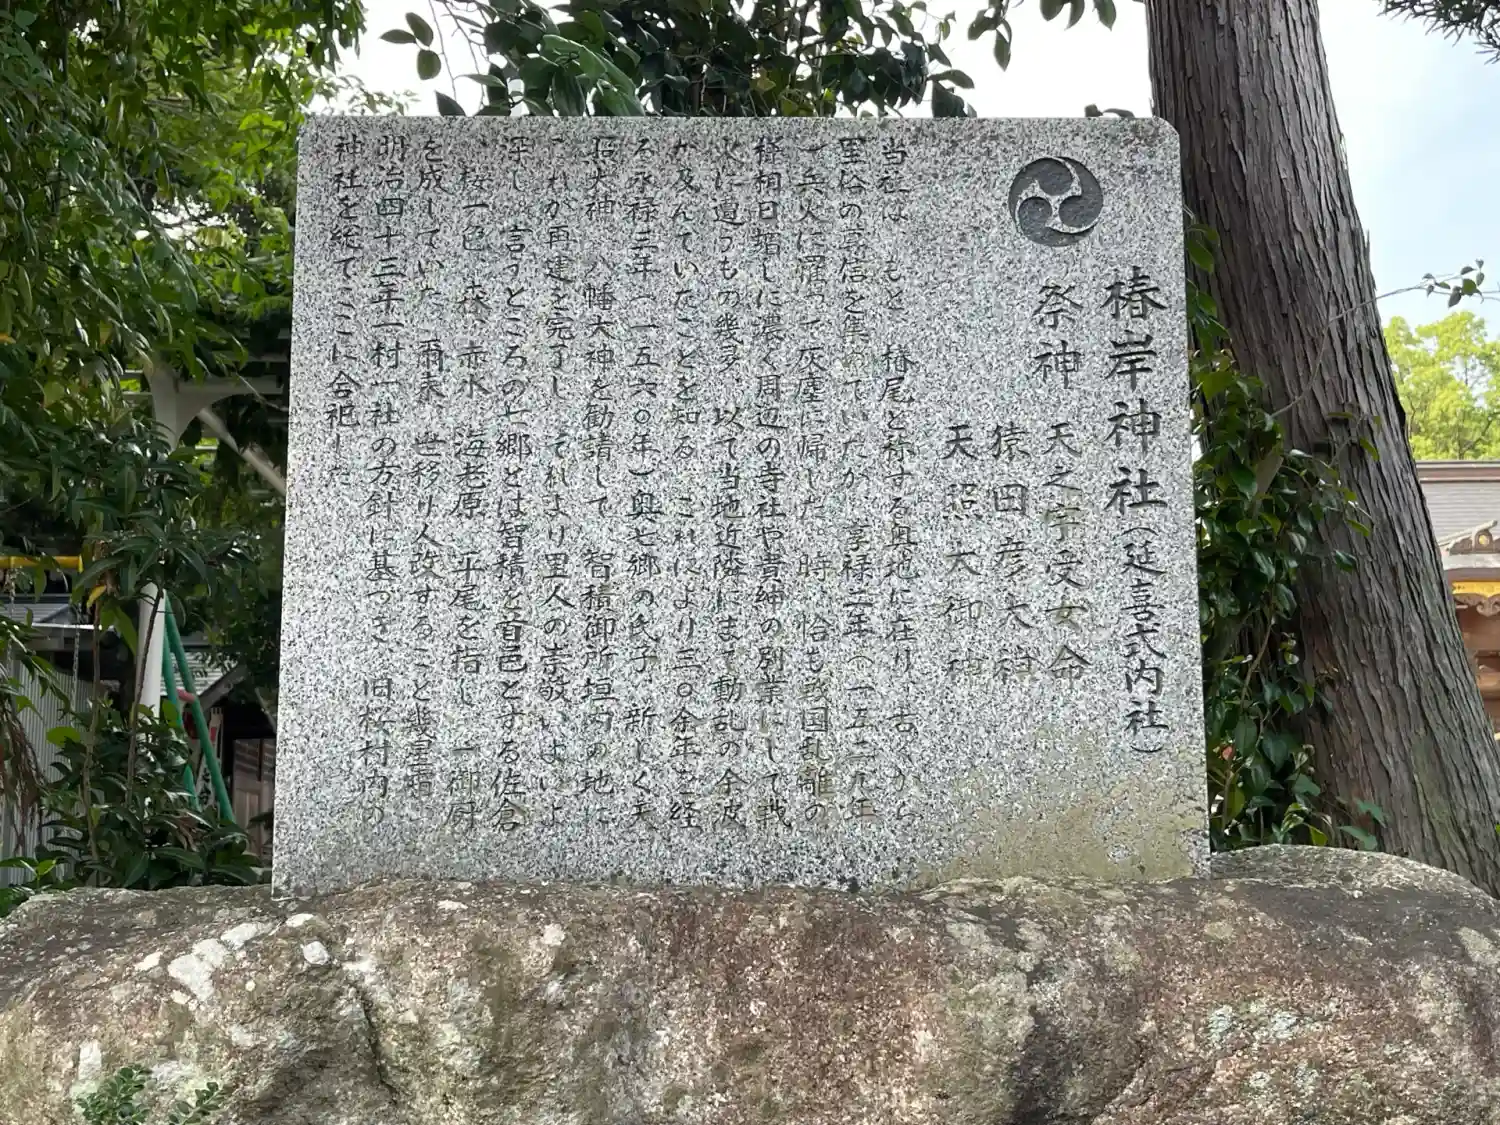 椿岸神社(延喜式内社)
祭神 天之宇受女命
猿田彦大神
天照大御神
当社は、もと、椿尾と称する奥地に在り、古くから
里俗の信を集めていたが、享禄二年(一五二九年
)兵火に罹って灰塵に帰した。時、恰も戦国乱離の
様相日増しに濃く周辺の寺社や貴紳の別業にして戦
火に遭うもの幾ヶ、以て当地近隣にまで動乱の余波
が及んでいたことを知る。これにより三〇余年を経
る永禄三年(一五六〇年)奥七郷の氏子、新しく天
照大神、八幡大神を勧請して、智積御所垣内の地に
これが再建を完了し、それより里人の崇敬いよいよ
深し。言うところの七郷とは智積を首邑とする佐倉
、桜一色、森、赤水、海老原、平尾を指し、一御厨
を成していた。爾来、世移り人改すること幾星霜
明治四十三年一村一社の方針に基づき、旧桜村内の
神社を総てここに合祀した。